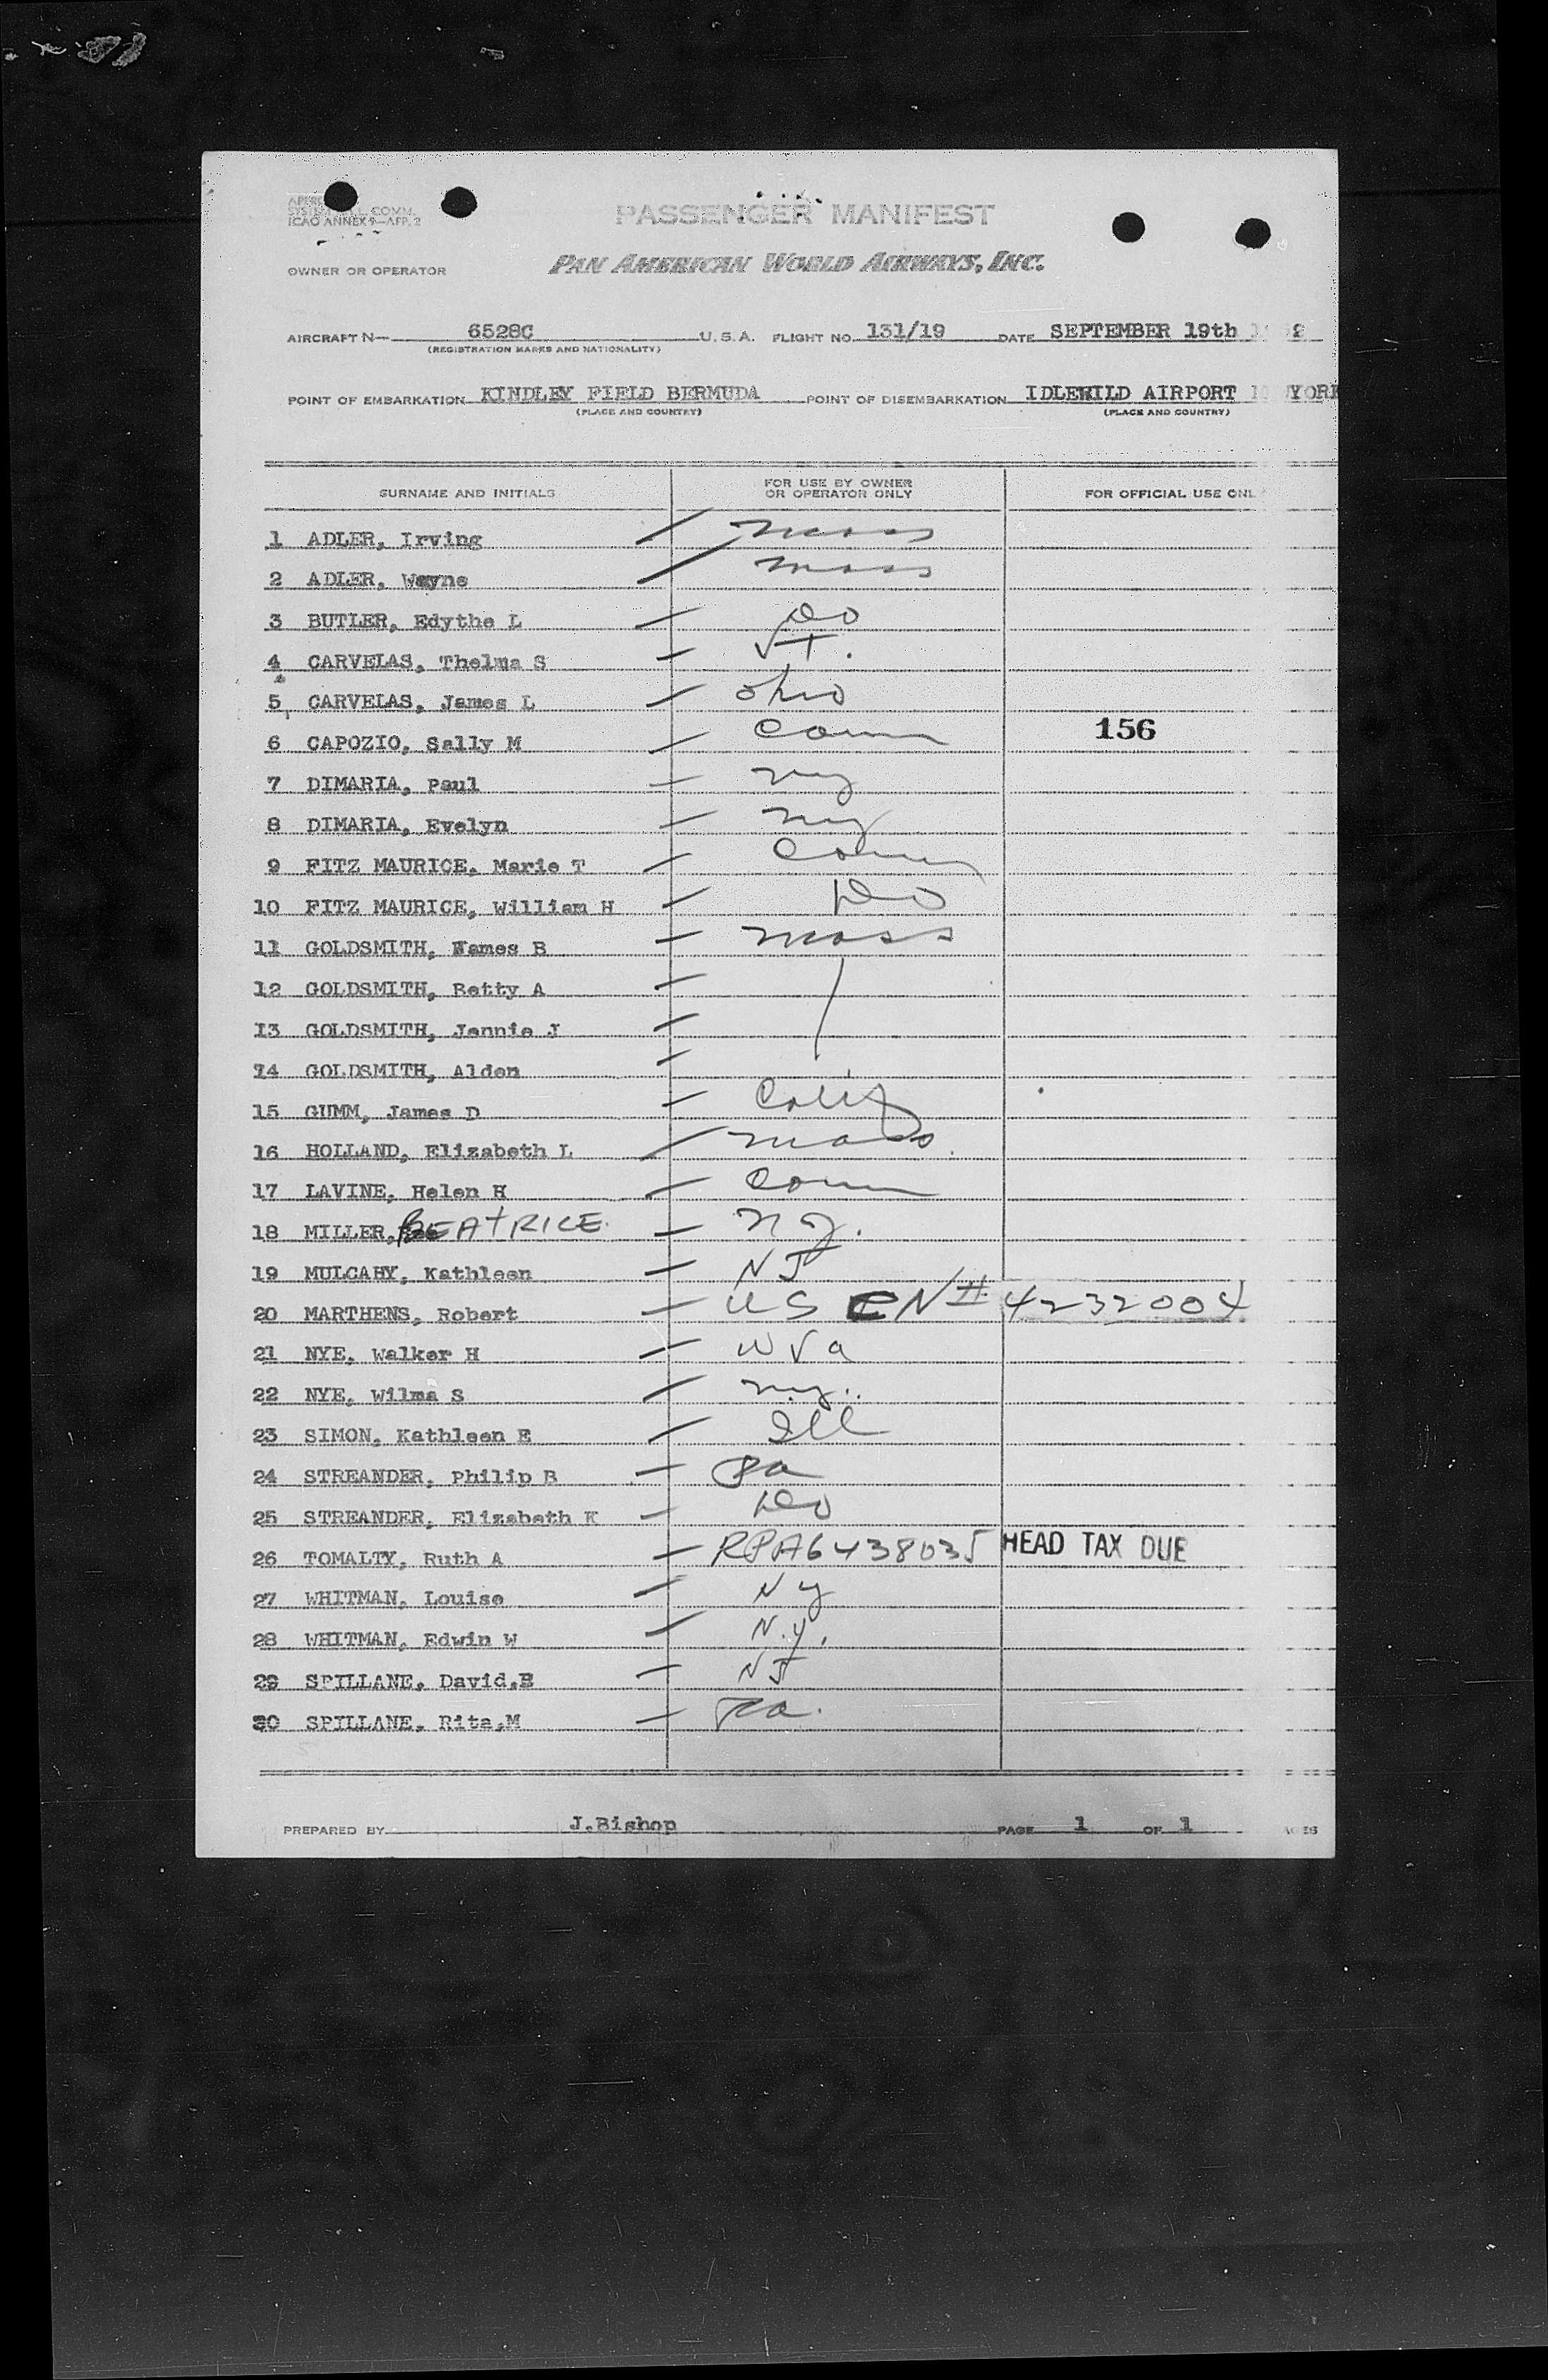 SYSTEM COMM.
ICAO ANNEX 9—APP. 2
PASSENGER MANIFEST
OWNER OR OPERATOR PAN AMERICAN WORLD AIRWAYS, INC.
AIRCRAFT N— 6528C U. S. A. FLIGHT NO. 131/19 DATE SEPTEMBER 19th
(REGISTRATION MARKS AND NATIONALITY)
POINT OF EMBARKATION KINDLEY FIELD BERMUDA POINT OF DISEMBARKATION IDLEWILD AIRPORT YORK
(PLACE AND COUNTRY) (PLACE AND COUNTRY)
SURNAME AND INITIALS FOR USE BY OWNER OR OPERATOR ONLY FOR OFFICIAL USE ONLY
1 ADLER, Irving / mass
2 ADLER, Wayne / mass
3 BUTLER, Edythe L / Do
4 CARVELAS, Thelma S / VT.
5 CARVELAS, James L / Ohio
6 CAPOZIO, Sally M / Conn 156
7 DIMARIA, Paul / ny
8 DIMARIA, Evelyn / ny
9 FITZ MAURICE, Marie T / Conn
10 FITZ MAURICE, William H / Do
11 GOLDSMITH, Names B / mass
12 GOLDSMITH, Betty A /
13 GOLDSMITH, Jennie J /
14 GOLDSMITH, Alden /
15 GUMM, James D / Calif
16 HOLLAND, Elizabeth L / mass.
17 LAVINE, Helen H / Conn
18 MILLER, BEATRICE. / ny.
19 MULCAHY, Kathleen / NJ
20 MARTHENS, Robert / US CN# 4232004
21 NYE, Walker H / W Va
22 NYE, Wilma S / n.y.
23 SIMON, Kathleen E / Ill
24 STREANDER, Philip B / Pa
25 STREANDER, Elizabeth K / Do
26 TOMALTY, Ruth A / RPA6438035 HEAD TAX DUE
27 WHITMAN, Louise / Ny
28 WHITMAN, Edwin W / N.y.
29 SPILLANE, David.B / NJ
30 SPILLANE, Rita.M / Pa.
PREPARED BY J.Bishop PAGE 1 OF 1